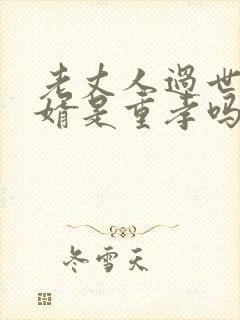 老丈人过世
婿是重孝吗
冬雪天